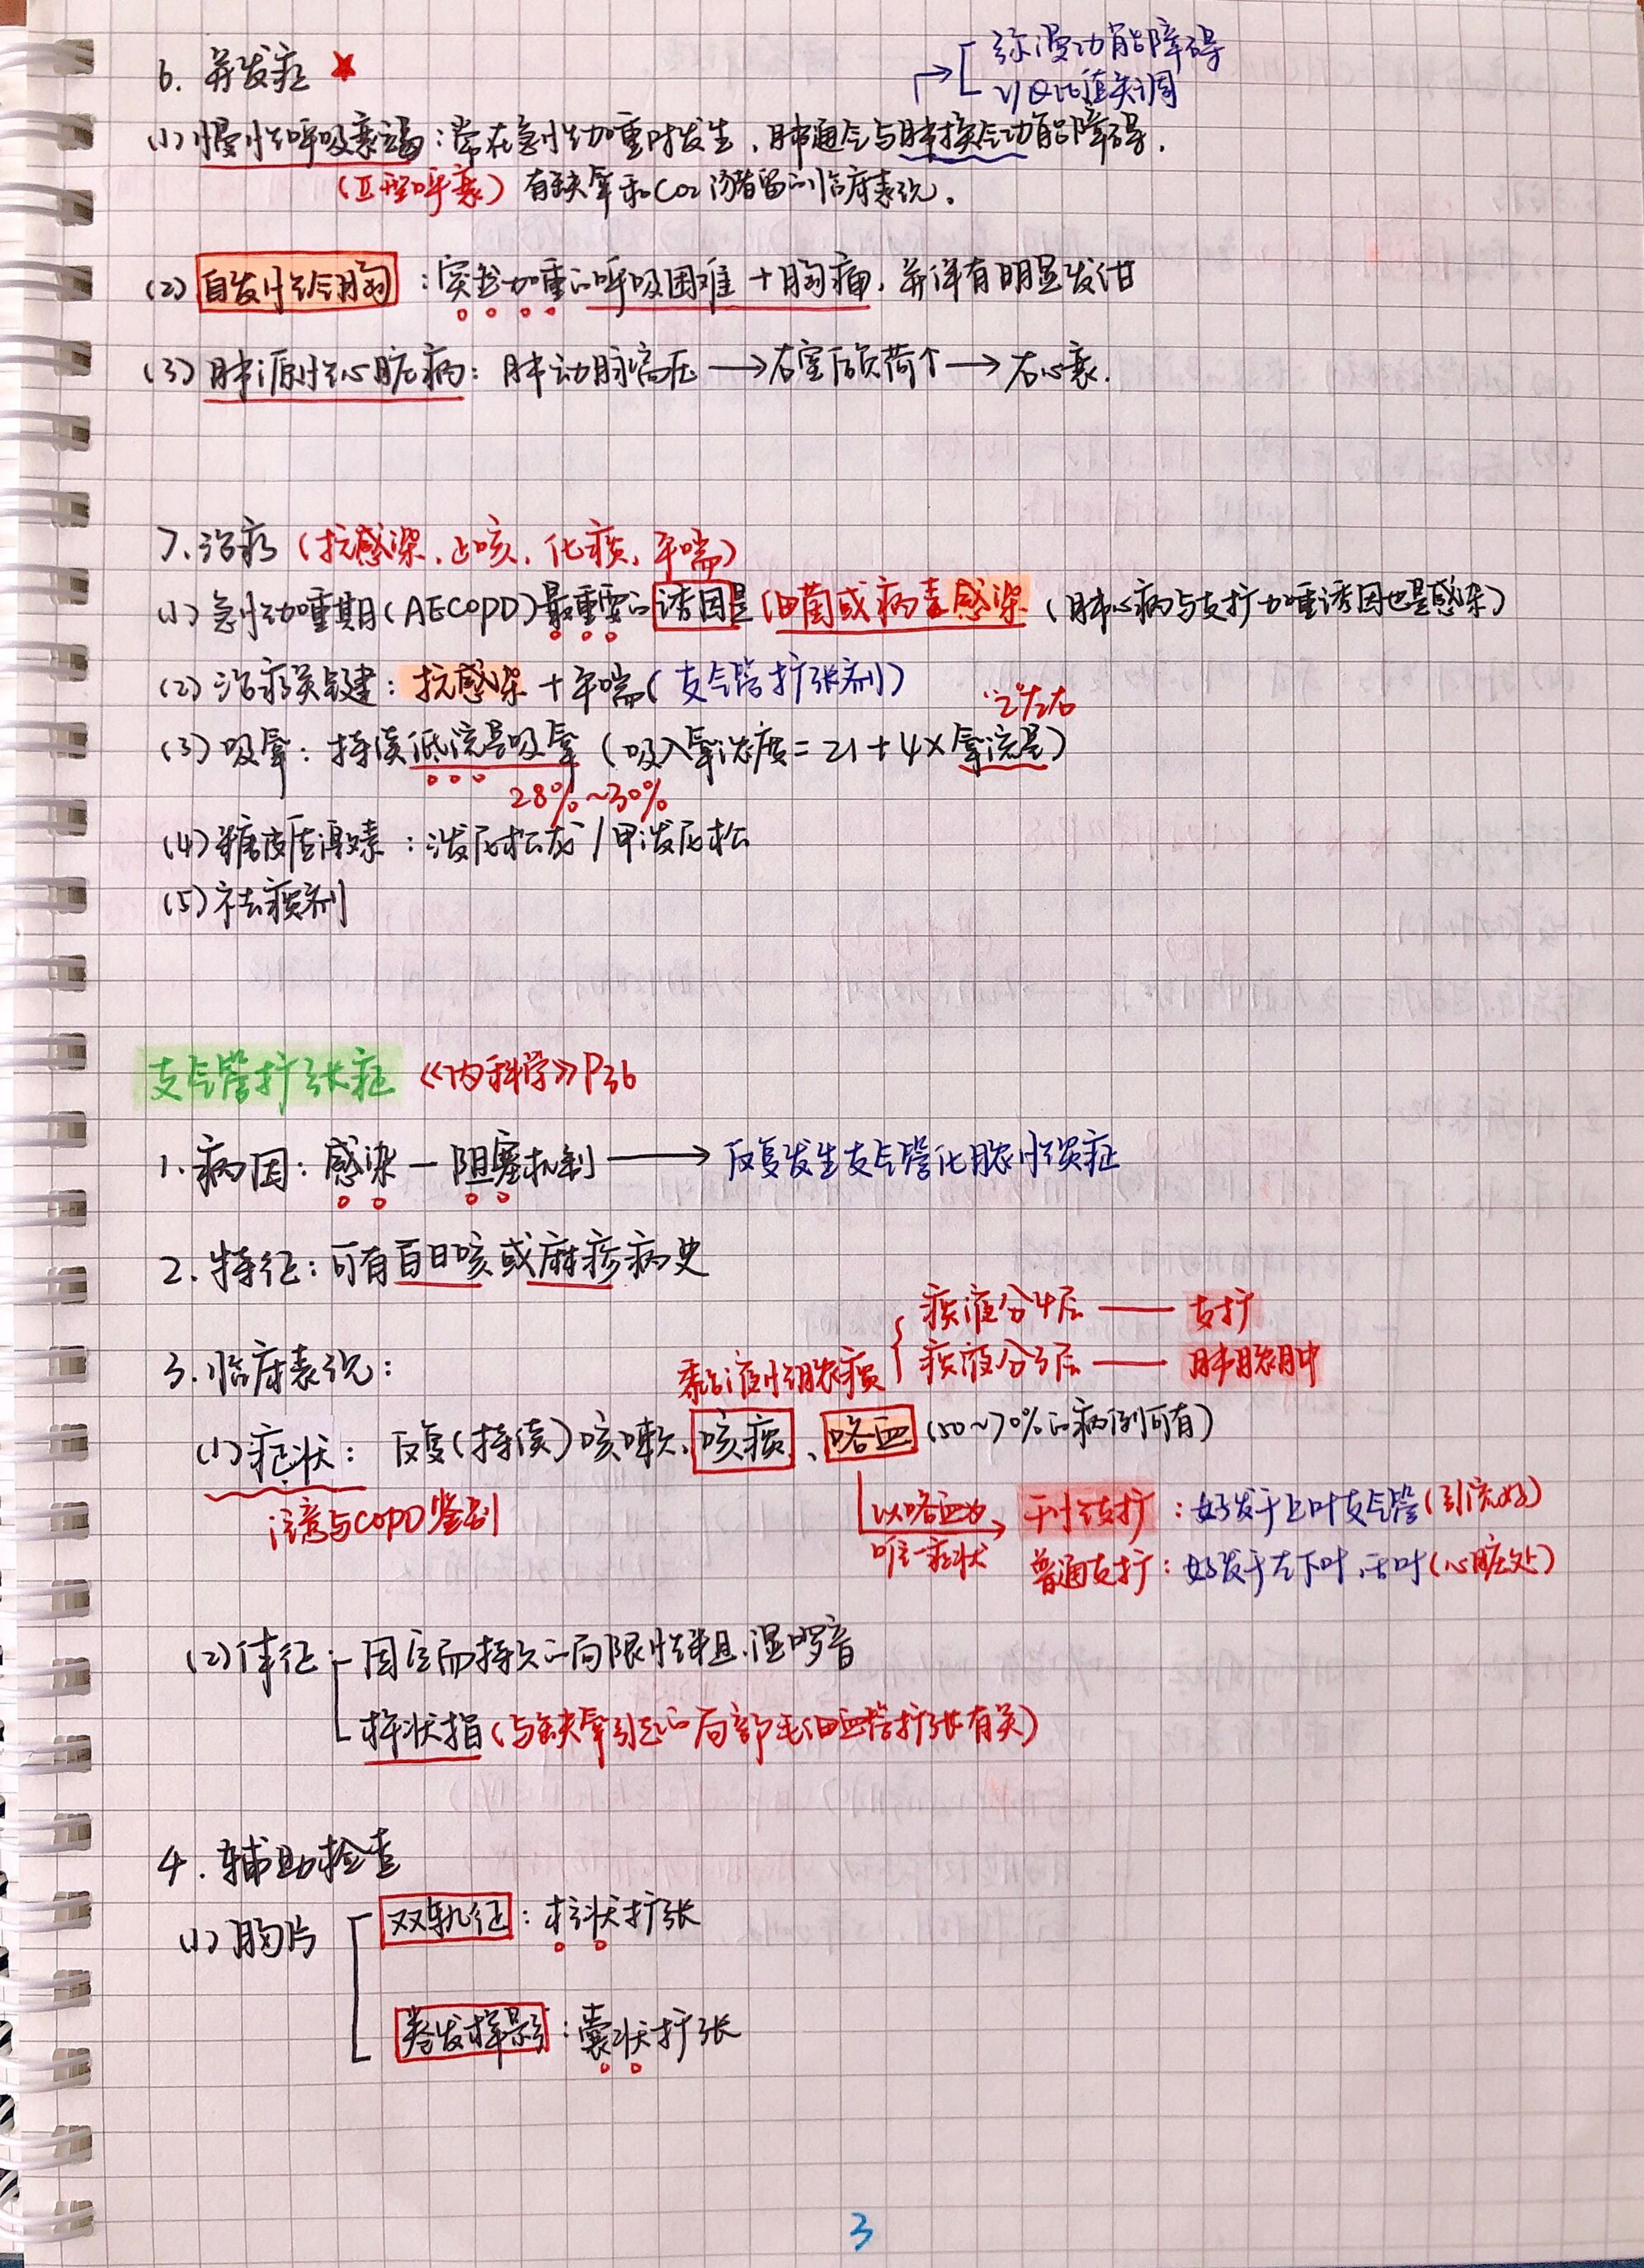 弥漫功能障碍
6. 并发症 ★
V/Q比值失调
(1) 慢性呼吸衰竭：常在急性加重时发生，肺通气与肺换气功能障碍，
(Ⅱ型呼衰) 有缺氧和CO2潴留的临床表现。
(2) 自发性气胸：突发加重的呼吸困难+胸痛，并伴有明显发绀
(3) 肺源性心脏病：肺动脉高压→右室后负荷↑→右心衰.
7. 治疗 (抗感染、止咳、化痰、平喘)
(1) 急性加重期(AECOPD)最重要的诱因是细菌或病毒感染 (肺心病与支扩加重诱因也是感染)
(2) 治疗关键：抗感染+平喘(支气管扩张剂)
"2"左右
(3) 吸氧：持续低流量吸氧 (吸入氧浓度=21+4×氧流量)
28%~30%
(4) 糖皮质激素：泼尼松龙/甲泼尼松
(5) 祛痰剂
支气管扩张症 《内科学》P36
1. 病因：感染—阻塞机制→反复发生支气管化脓性炎症
2. 特征：可有百日咳或麻疹病史
痰液分4层——支扩
3. 临床表现：
黏液性脓痰
痰液分3层——肺脓肿
(1) 症状：反复(持续)咳嗽、咳痰、咯血(50~70%的病例可有)
注意与COPD鉴别
以咯血为唯一症状→干性支扩：好发于上叶支气管(引流好)
普通支扩：好发于左下叶、舌叶(心脏处)
(2) 体征 固定而持久的局限性粗湿啰音
杵状指(与缺氧引起的局部毛细血管扩张有关)
4. 辅助检查
(1) 胸片 双轨征：柱状扩张
卷发样影：囊状扩张
3